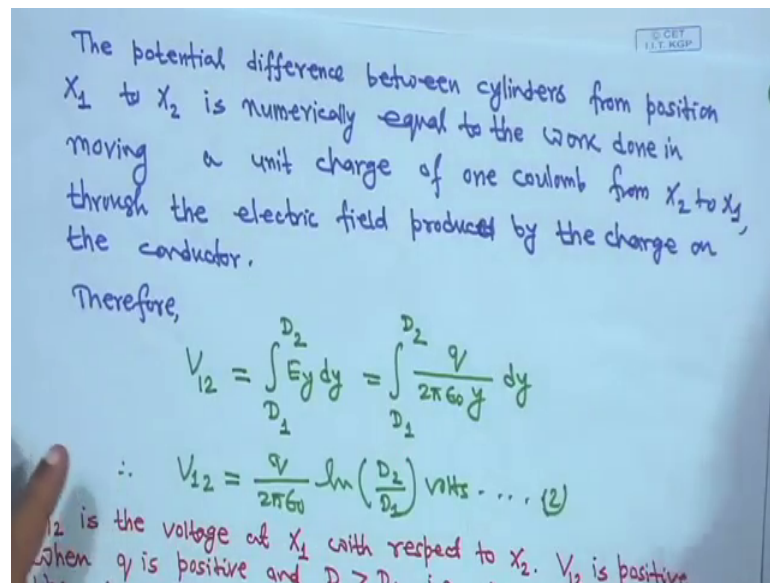 © CET
I.I.T. KGP
The potential difference between cylinders from position
X1 to X2 is numerically equal to the work done in
moving a unit charge of one coulomb from X2 to X1,
through the electric field produced by the charge on
the conductor.
Therefore,
V12 = ∫_{D1}^{D2} Ey dy = ∫_{D1}^{D2} q/(2πϵ0 y) dy
∴ V12 = q/(2πϵ0) ln(D2/D1) volts .... (2)
12 is the voltage at X1 with respect to X2. V12 is positive
when q is positive and